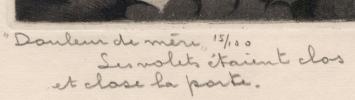 "Douleur de mère" 15/100
Les volets étaient clos
et close la porte.